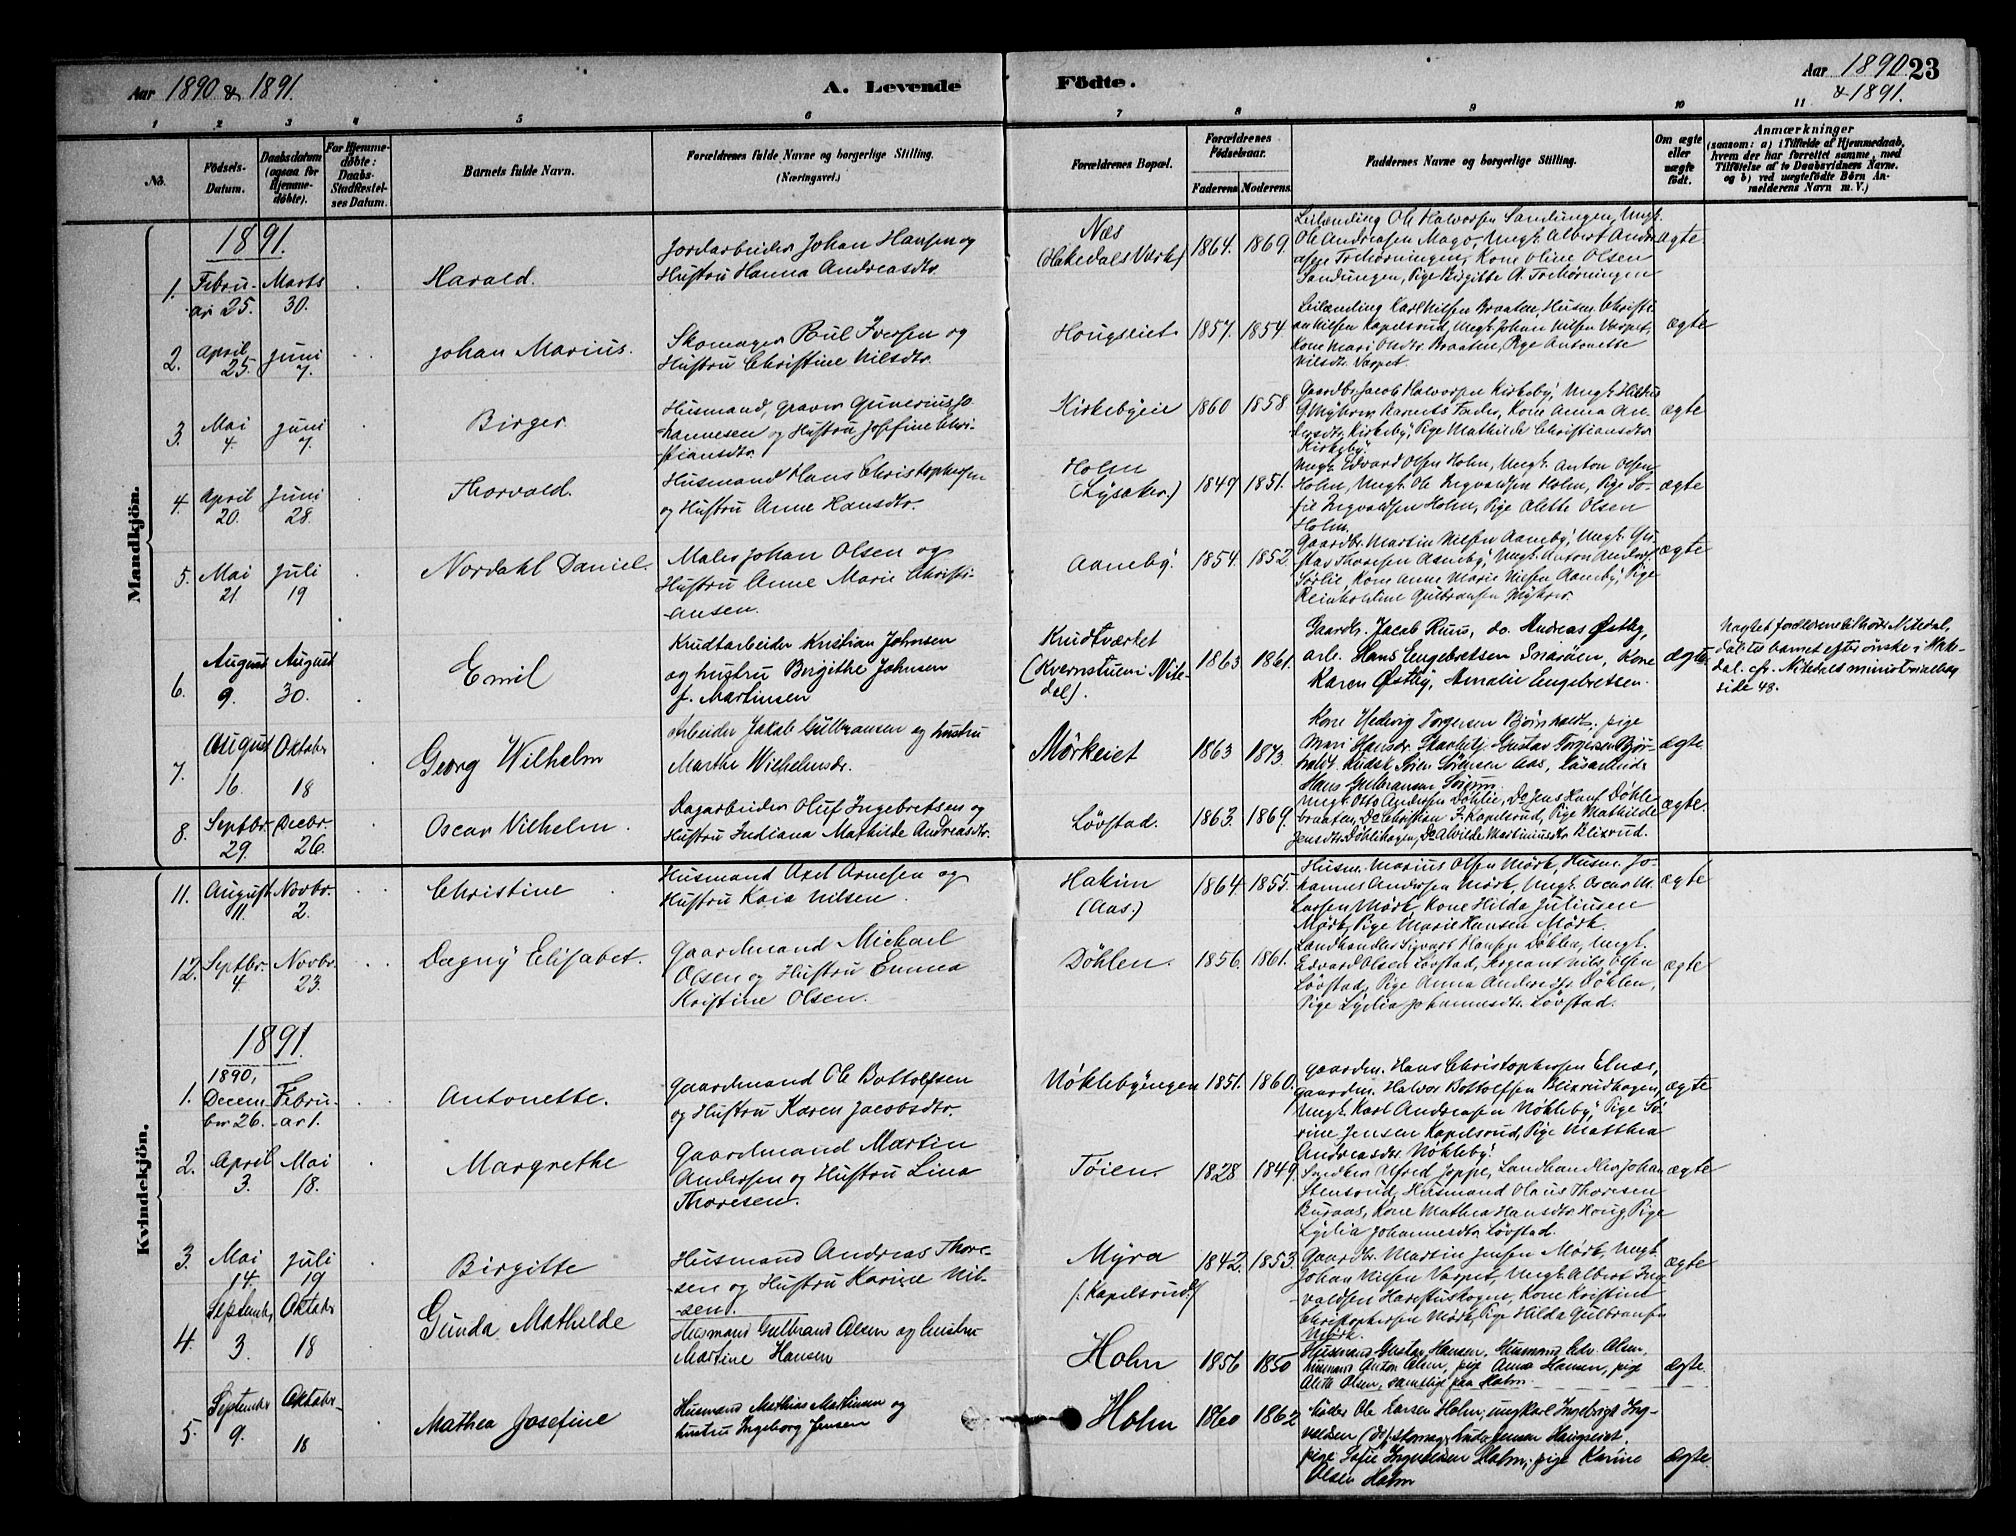 Aar 1890 & 1891.
A. Levende Födte.
Aar 1890 & 1891. 23
1 2 3 4 5 6 7 8 9 10 11
No.
Födsels-Datum.
Daabsdatum (ogsaa for Hjemme-döbte).
For Hjemme-döbte: Daabs-Stadfæstel-ses Datum.
Barnets fulde Navn.
Forældrenes fulde Navne og borgerlige Stilling. (Næringsvei.)
Forældrenes Bopæl.
Forældrenes Födselsaar.
Faderens Moderens.
Faddernes Navne og borgerlige Stilling.
Om ægte eller uægte födt.
Anmærkninger
(saasom: a) i Tilfælde af Hjemmedaab, hvem der har forrettet samme, med Tilföielse af to Daabsvidners Navne. og b) ved uægtefödte Börn An-melderens Navn m. V.)
Mandkjön.
1891.
1. Febru-ar 25. Marts 30. Harald.
Jordarbeider Johan Hansen og
Hustru Hanna Andreasdtr.
Næs (Hakedals Værk) 1864. 1869.
Leilænding Ole Halvorsen Sandungen, Ungk.
Ole Andreasen Mago, Ungk. Albert Andre-
asen Tremörningen, Kone Oline Olsen
Sandungen, Pige Birgitte A. Tremörningen
ægte
2. April 25. Juni 7. Johan Marius.
Skomager Poul Iversen og
Hustru Christine Nilsdtr.
Hougseiet 1857. 1854.
Leilænding Karl Nilsen Braaten, Husm. Christi-
an Nilsen Kapelsrud, Ungk. Johan Nilsen Varpet,
Kone Mari Olsdtr. Braaten, Pige Antonette
Nilsdtr. Varpet.
ægte
3. Mai 4. Juni 7. Birger
Husmand, graver Gunerius Jo-
hannesen og Hustru Josefine Chri-
stiansdtr.
Kirkebyeie 1860 1858
Gaardbr. Jacob Halvorsen Kirkeby, Ungk. Hildus
G. Myhrer, Barnets Fader, Kone Anna An-
dersdtr. Kirkeby, Pige Mathilde Christiansdtr.
Kirkeby.
ægte
4. April 20. Juni 28. Thorvald.
Husmand Hans Christophersen
og Hustru Anne Hansdtr.
Holm (Lysaker.) 1849 1851.
Ungk. Edvard Olsen Holm, Ungk. Anton Olsen
Holm, Ungk. Ole Ingvaldsen Holm, Pige So-
fie Ingvaldsen Holm, Pige Alette Olsen
Holm.
ægte
5. Mai 21. Juli 19 Nordahl Daniel.
Maler Johan Olsen og
Hustru Anne Marie Christi-
ansen.
Aaneby. 1854. 1852.
Gaardbr. Martin Nilsen Aaneby, Ungk. Gu-
stav Thoresen Aaneby, Ungk. Anton Anders.
Sörlie, Kone Anne Marie Nilsen Aaneby, Pige
Reinholdine Gulbransen Myhrer.
ægte
6. August 9. August 30. Emil
Krudtarbeider Kristian Johnsen
og hustru Birgithe Johnsen
f. Martinsen
Krudtværket (Kvernstuen i Nite-dal). 1863 1861.
Gaardbr. Jacob Ruus, do. Andreas Østby,
arb. Hans Engebretsen Snaröen, Kone
Karen Østby, Amalie Engebretsen.
ægte
Uagtet forældrene tilhöre Nitedal,
döbtes barnet efter önske i Hake-
dal. cfr. Nitedals ministerialbog
side 48.
7. August 16. Oktober 18 Georg Wilhelm
Arbeider Jakob Gulbransen og hustru
Marthe Wilhelmsdr.
Mörkeiet 1863 1873.
Kone Hedvig Torgersen Björnholdt, pige
Mari Hansdr.
Gustav Torgersen Björ-
Kudsk Sören Sörensen Aas,
Hans Gulbransen
ægte
8. Septbr. 29. Decbr. 26. Oscar Vilhelm.
Dagarbeider Oluf Ingebretsen og
Hustru Indiana Mathilde Andreasdtr.
Lövstad. 1863. 1869.
Ungk. Otto Andersen Döhlie, Do Jens Hauf Döhle-
braaten, Do Christian J. Kapelsrud, Pige Mathilde
Jensdtr. Döhlehagen, Do Alvilde Martinusdtr. Blixrud.
ægte
Kvindekjön.
11. August 11. Novbr. 2. Christine
Husmand Axel Arnesen og
Hustru Kaia Nilsen.
Hakim (Aas.) 1864 1855.
Husm. Marius Olsen Mörk, Husm. Jo-
hannes Andersen Mörk, Ungk. Oscar M.
Larsen Mörk, Kone Hilda Juliusen
Mörk, Pige Marie Hansen Mörk.
ægte
12. Septbr. 4. Novbr. 23. Dagny Elisabet.
Gaardmand Michael
Olsen og Hustru Emma
Kristine Olsen.
Döhlen. 1856. 1861.
Landhandler Sigvart Hansen Döhlen, Ungk.
Edvard Olsen Lövstad, Sergeant Nils Olsen
Lövstad, Pige Anna Andersdtr. Döhlen,
Pige Lydia Johannesdtr. Lövstad.
ægte
1891.
1. 1890, Decem-ber 26. Febru-ar 1. Antonette.
Gaardmand Ole Bottolfsen
og Hustru Karen Jacobsdtr.
Nöklebyengen 1851. 1860.
Gaardm. Hans Christophersen Elnæs,
gaardm. Halvor Bottolfsen Blixrudhagen,
Ungk. Karl Andreasen Nökleby, Pige Sö-
rine Jensen Kapelsrud, Pige Matthea
Andreasdtr. Nökleby.
ægte
2. April 3. Mai 18. Margrethe
Gaardmand Martin
Andersen og Hustru Lina
Thoresen.
Töien. 1828 1849.
Alfred Joppe, Landhandler Johan
Stensrud, Husmand Olaus Thoresen
Buraas, Kone Mathea Hansdtr. Houg, Pige
Lydia Johannesdtr. Lövstad.
ægte
3. Mai 14. Juli 19 Birgitte
Husmand Andreas Thore-
sen og Hustru Karine Nil-
sen.
Myra (Kapelsrud) 1842. 1853.
Gaardbr. Martin Jensen Mörk, Ungk.
Johan Nilsen Varpet, Ungk. Albert Ing-
valdsen Harestuskogen, Kone Kristine
Christophersen Mörk, Pige Hilda Gulbransen
Mörk.
ægte
4. Septembr. 3. Oktober 18 Gunda Mathilde
Husmand Gulbrand Olsen og hustru
Martine Hansen
Holm 1856 1850
Husmand Gustav Hansen, Husmand Edv. Olsen,
husmand Anton Olsen, pige Anna Hansen, pige
Alette Olsen, samtlige paa Holm.
ægte.
5. September 9. Oktober 18 Mathea Josefine
Husmand Mathias Martinsen og
hustru Ingeborg Jensen
Holm 1860 1862
Ole Larsen Holm, ungkarl Ingebrigt Ing-
valdsen (do), skomag. Jensen Haugseiet,
pige Sofie Ingvaldsen Holm, pige Karine
Olsen Holm
ægte.